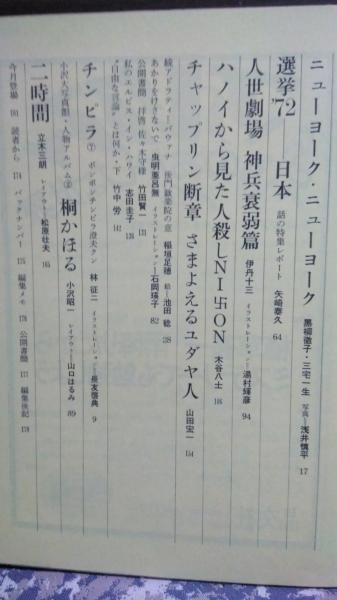 ニューヨーク・ニューヨーク 黒柳徹子・三宅一生 写真=浅井慎平 17
選挙'72 日本 話の特集レポート 矢崎泰久 64
人世劇場 神兵衰弱篇 伊丹十三 イラストレーション=湯村輝彦 94
ハノイから見た人殺しNI卐ON 木谷八士 106
チャップリン断章 さまよえるユダヤ人 山田宏一 154
綺アドラティーバヴァナ 後門鉄薬院の意 稲垣足穂 絵=池田稔 28
あかりを付けないで 虫明亜呂無 イラストレーション=石岡瑛子 82
公開書簡・拝啓佐々木守様 竹田賢一 131
私のエルビス・イン・ハワイ 志田圭子 136
"自由な言論"とは何か・下 竹中労 142
チンピラ⑦ ポンポンチンピラ澄夫クン 林征二 イラストレーション=長友啓典 9
小沢大写真館・人物アルバム② 桐かほる 小沢昭一 レイアウト=山口はるみ 89
二時間 立木三朗 レイアウト=松原壮夫 165
今月登場 161 読者から 174 バックナンバー 175 編集メモ 176 公開書簡 177 編集後記 178